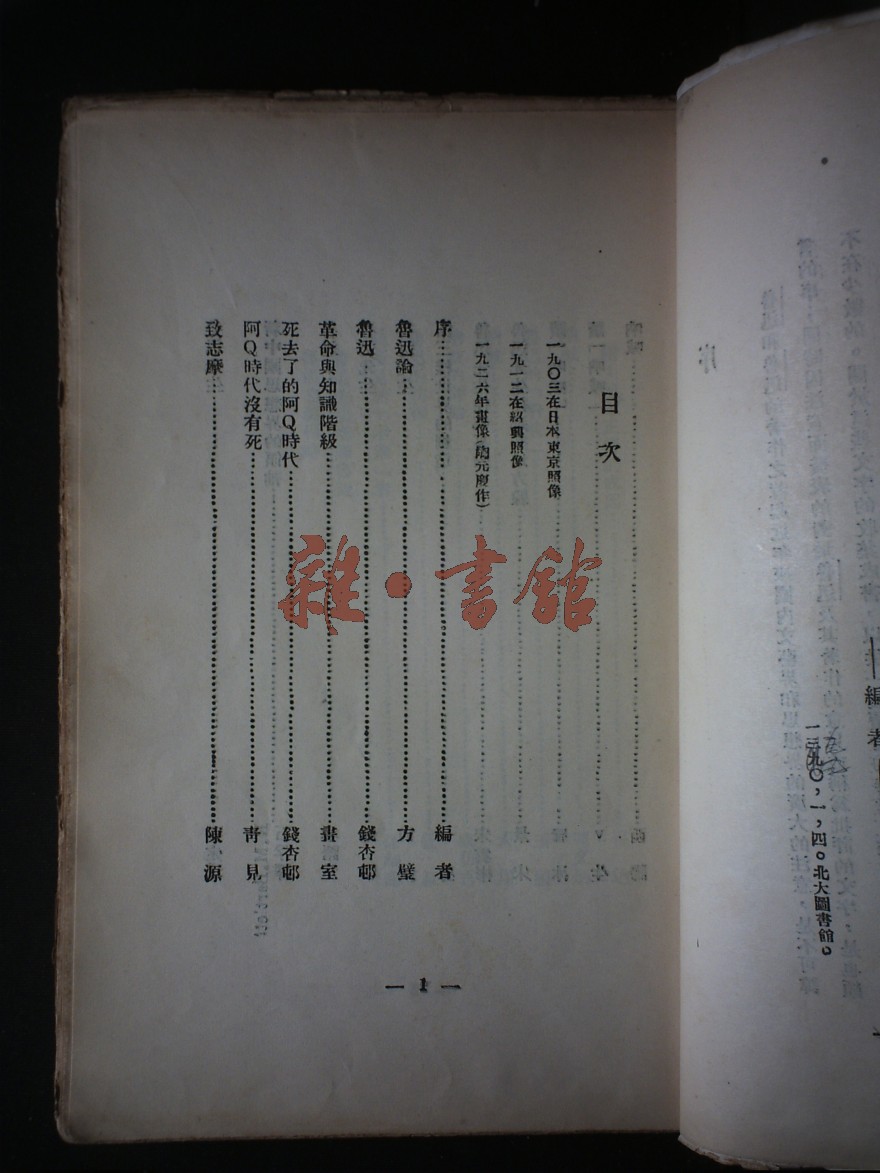 編者
一九三〇，一，四。北大圖書館。
目次
一九〇三在日本東京照像
一九一二在紹興照像
一九二六年畫像（陶元慶作）
序……編者
魯迅論……方璧
魯迅……錢杏邨
革命與知識階級……畫室
死去了的阿Q時代……錢杏邨
阿Q時代沒有死……青見
致志摩……陳源
— 1 —
雜·書館